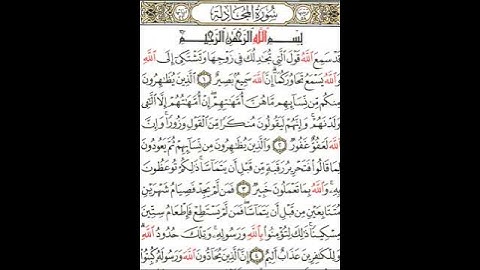 سُورَةُ المُجَادلَةِ
بِسْمِ اللَّهِ الرَّحْمَٰنِ الرَّحِيمِ
قَدْ سَمِعَ اللَّهُ قَوْلَ الَّتِي تُجَادِلُكَ فِي زَوْجِهَا وَتَشْتَكِي إِلَى اللَّهِ
وَاللَّهُ يَسْمَعُ تَحَاوُرَكُمَا إِنَّ اللَّهَ سَمِيعٌ بَصِيرٌ ١ الَّذِينَ يُظَاهِرُونَ
مِنكُم مِّن نِّسَائِهِم مَّا هُنَّ أُمَّهَاتِهِمْ إِنْ أُمَّهَاتُهُمْ إِلَّا الَّائِي
وَلَدْنَهُمْ وَإِنَّهُمْ لَيَقُولُونَ مُنكَرًا مِّنَ الْقَوْلِ وَزُورًا وَإِنَّ
اللَّهَ لَعَفُوٌّ غَفُورٌ ٢ وَالَّذِينَ يُظَاهِرُونَ مِن نِّسَائِهِمْ ثُمَّ يَعُودُونَ
لِمَا قَالُوا فَتَحْرِيرُ رَقَبَةٍ مِّن قَبْلِ أَن يَتَمَاسَّا ذَٰلِكُمْ تُوعَظُونَ
بِهِ وَاللَّهُ بِمَا تَعْمَلُونَ خَبِيرٌ ٣ فَمَن لَّمْ يَجِدْ فَصِيَامُ شَهْرَيْنِ
مُتَتَابِعَيْنِ مِن قَبْلِ أَن يَتَمَاسَّا فَمَن لَّمْ يَسْتَطِعْ فَإِطْعَامُ سِتِّينَ
مِسْكِينًا ذَٰلِكَ لِتُؤْمِنُوا بِاللَّهِ وَرَسُولِهِ وَتِلْكَ حُدُودُ اللَّهِ
وَلِلْكَافِرِينَ عَذَابٌ أَلِيمٌ ٤ إِنَّ الَّذِينَ يُحَادُّونَ اللَّهَ وَرَسُولَهُ كُبِتُوا